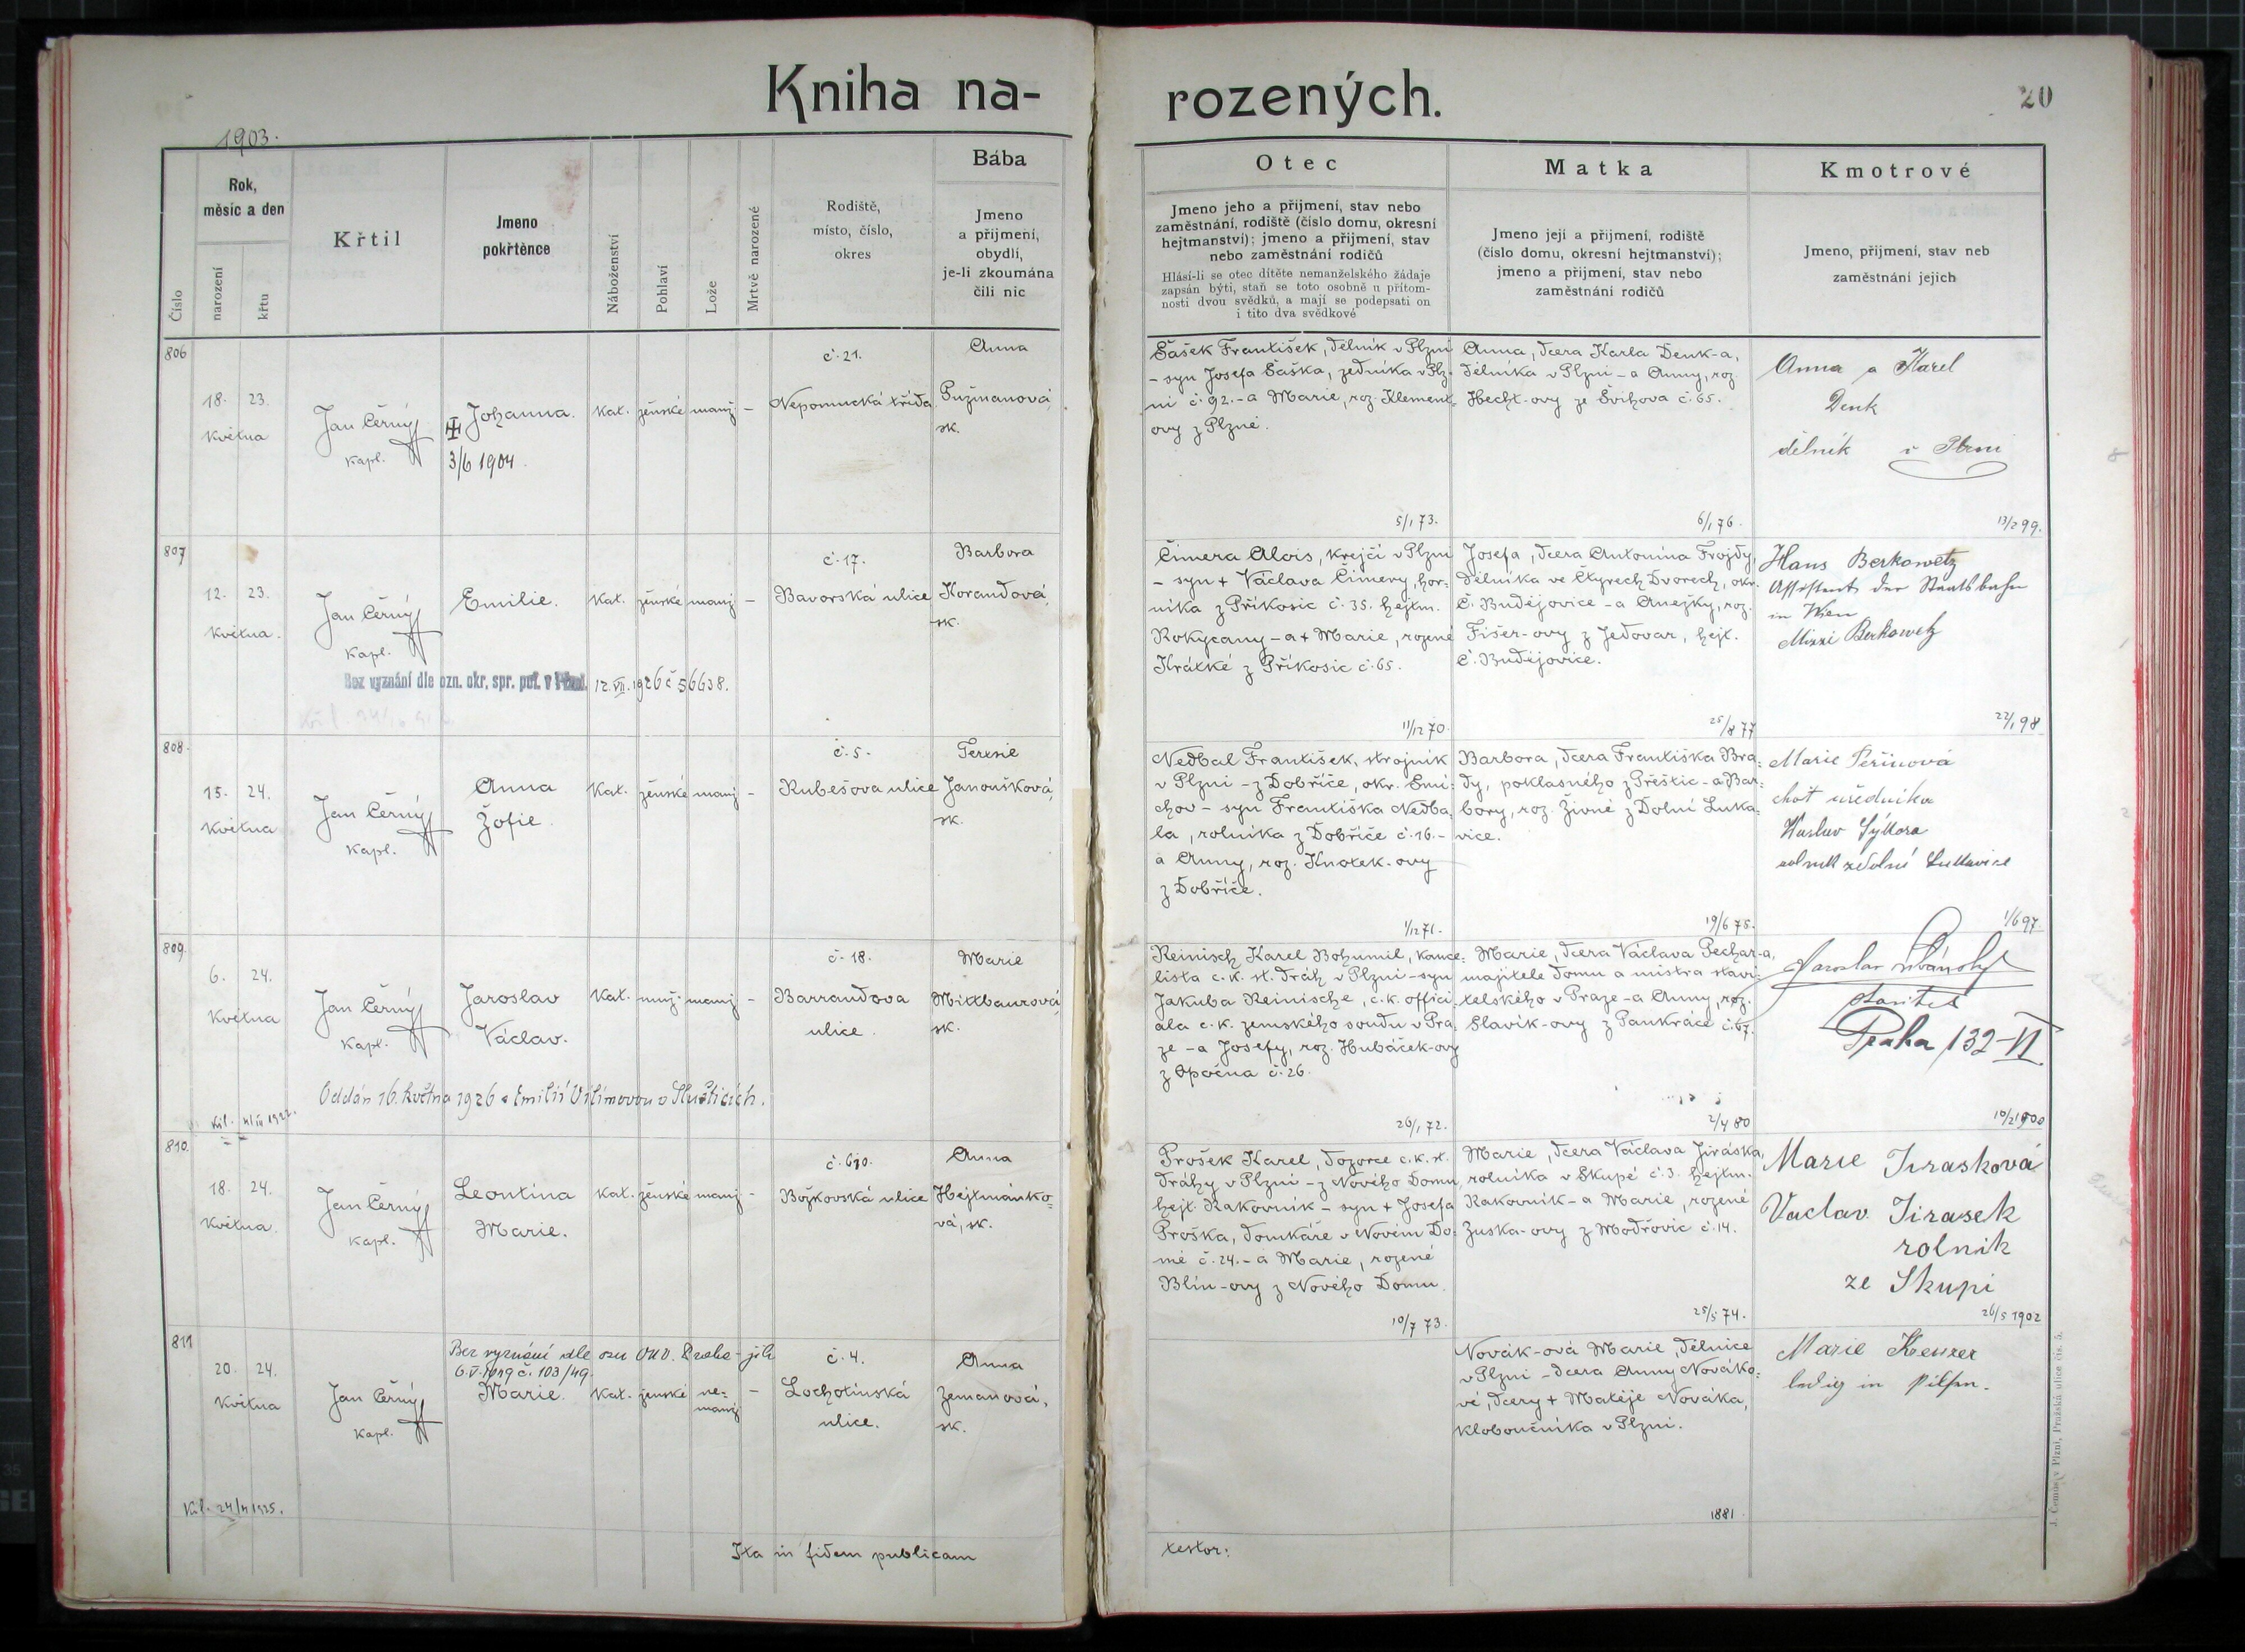 Kniha na-
rozených.
20
1903.
Číslo
Rok,
měsíc a den
narození
křtu
Křtil
Jmeno
pokřtěnce
Náboženství
Pohlaví
Lože
Mrtvě narozené
Rodiště,
místo, číslo,
okres
Bába
Jmeno
a přijmení,
obydlí,
je-li zkoumána
čili nic
Otec
Jmeno jeho a přijmení, stav nebo
zaměstnání, rodiště (číslo domu, okresní
hejtmanství); jmeno a přijmení, stav
nebo zaměstnání rodičů
Hlásí-li se otec dítěte nemanželského žádaje
zapsán býti, staň se toto osobně u přítom-
nosti dvou svědků, a mají se podepsati on
i tito dva svědkové
Matka
Jmeno její a přijmení, rodiště
(číslo domu, okresní hejtmanství);
jmeno a přijmení, stav nebo
zaměstnání rodičů
Kmotrové
Jmeno, přijmení, stav neb
zaměstnání jejich
806
18. 23.
května
Jan Černý
kapl.
Johanna.
3/6 1904.
kat. ženské manž. –
č. 21.
Nepomucká třída
Anna
Pužmanová,
zk.
Šašek František, dělník v Plzni
– syn Josefa Šaška, zedníka v Plz-
ni č. 92. – a Marie, roz. Klement-
ovy z Plzně.
5/1 73.
Anna, dcera Karla Denk-a,
dělníka v Plzni – a Anny, roz.
Hecht-ovy ze Švihova č. 65.
6/1 76.
Anna a Karel
Denk
dělník v Plzni
13/2 99.
807
12. 23.
května.
Jan Černý
kapl.
Emilie.
kat. ženské manž. –
č. 17.
Bavorská ulice
Barbora
Korandová,
zk.
Bez vyznání dle ozn. okr. spr. pol. v Plzni. 12. VII. 1926 č 56638.
Čimera Alois, krejčí v Plzni
– syn + Václava Čimery, hor-
níka z Příkosic č. 35. hejtm.
Rokycany – a + Marie, rozené
Krátké z Příkosic č. 65.
11/12 70.
Josefa, dcera Antonína Frojdy,
dělníka ve Čtyrech Dvorech, okr.
Č. Budějovice – a Anežky, roz.
Fišer-ovy z Jedovar, hejt.
Č. Budějovice.
25/8 77
Hans Berkowetz
Assistent der Staatsbahn
in Wien
Mizzi Berkowetz
22/1 98
808.
15. 24.
května
Jan Černý
kapl.
Anna
Žofie.
kat. ženské manž. –
č. 5.
Rubešova ulice
Terezie
Janoušková,
zk.
Nedbal František, strojník
v Plzni – z Dobříče, okr. Smí-
chov – syn Františka Nedba-
la, rolníka z Dobříče č. 16. –
a Anny, roz. Knotek-ovy
z Dobříče.
1/12 71.
Barbora, dcera Františka Bra-
dy, poklasného z Přeštic – a Bar-
bory, roz. Živné z Dolní Luka-
vice.
19/6 75.
Marie Peřinová
choť úředníka
Václav Sýkora
rolník z dolní Lukavice
1/6 97.
809.
6. 24.
května
Jan Černý
kapl.
Jaroslav
Václav.
kat. muž. manž. –
č. 18.
Barrandova
ulice.
Marie
Mittbaurová,
zk.
Oddán 16. května 1926 s Emilií Vilímovou v Slušticích.
Reinisch Karel Bohumil, kance-
lista c. k. st. dráh v Plzni – syn
Jakuba Reinische, c. k. offici-
ála c. k. zemského soudu v Pra-
ze – a Josefy, roz. Hubáček-ovy
z Opočna č. 26.
26/1 72.
Marie, dcera Václava Pechar-a,
majitele domu a mistra stavi-
telského v Praze – a Anny, roz.
Slavík-ovy z Pankráce č. 67.
2/4 80
Jaroslav
stavitel
Praha 132–VI
10/2 1900
810.
18. 24.
května.
Jan Černý
kapl.
Leontina
Marie.
kat. ženské manž. –
č. 610.
Božkovská ulice
Anna
Hejtmánko-
vá, zk.
Prošek Karel, dozorce c. k. st.
dráhy v Plzni – z Nového Domu,
hejt. Rakovník – syn + Josefa
Proška, domkáře v Novém Do-
mě č. 24. – a Marie, rozené
Blín-ovy z Nového Domu.
10/7 73.
Marie, dcera Václava Jiráska,
rolníka v Skupé č. 3. hejtm.
Rakovník – a Marie, rozené
Zuska-ovy z Modřovic č. 14.
25/5 74.
Marie Jirasková
Vaclav Jirasek
rolnik
ze Skupi
26/5 1902
811
20. 24.
května
Jan Černý
kapl.
Bez vyznání dle ozn ONV. Praha-jih
6.V.1949 č. 103/49.
Marie.
kat. ženské ne-
manž –
č. 4.
Lochotínská
ulice.
Anna
Zemanová,
zk.
Novák-ová Marie, dělnice
v Plzni – dcera Anny Nováko-
vé, dcery + Matěje Nováka,
kloboučníka v Plzni.
1881
Marie
ledig in Pilsen.
Ita in fidem publicam
testor:
J. Černý v Plzni, Pražská ulice čís. 5.